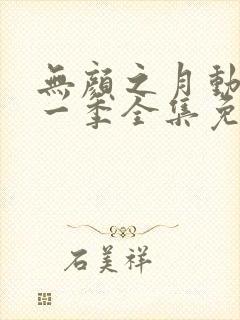 無顔之月動
一季全集免
石美祥